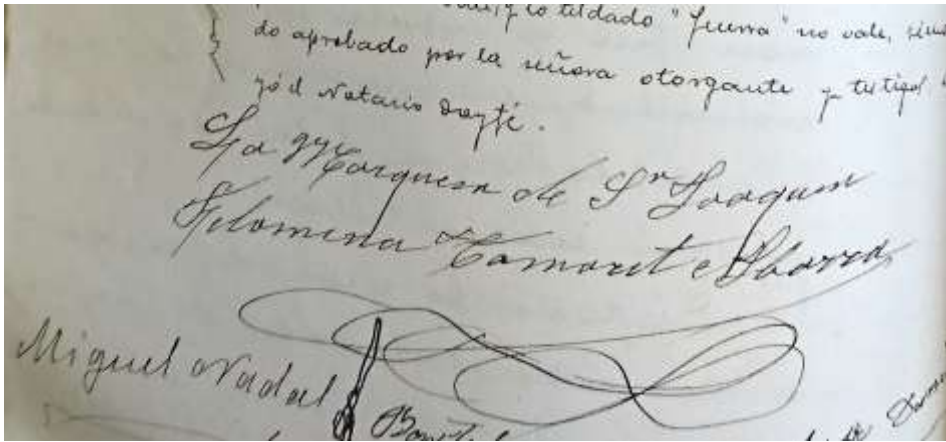 y lo tildado "fuerra" no vale, sien
do aprobado por la señora otorgante y testigos
yó el Notario doy fé.
La Marquesa de Sn Joaquin
Filomena Tamarit e Ibarra
Miguel Nadal